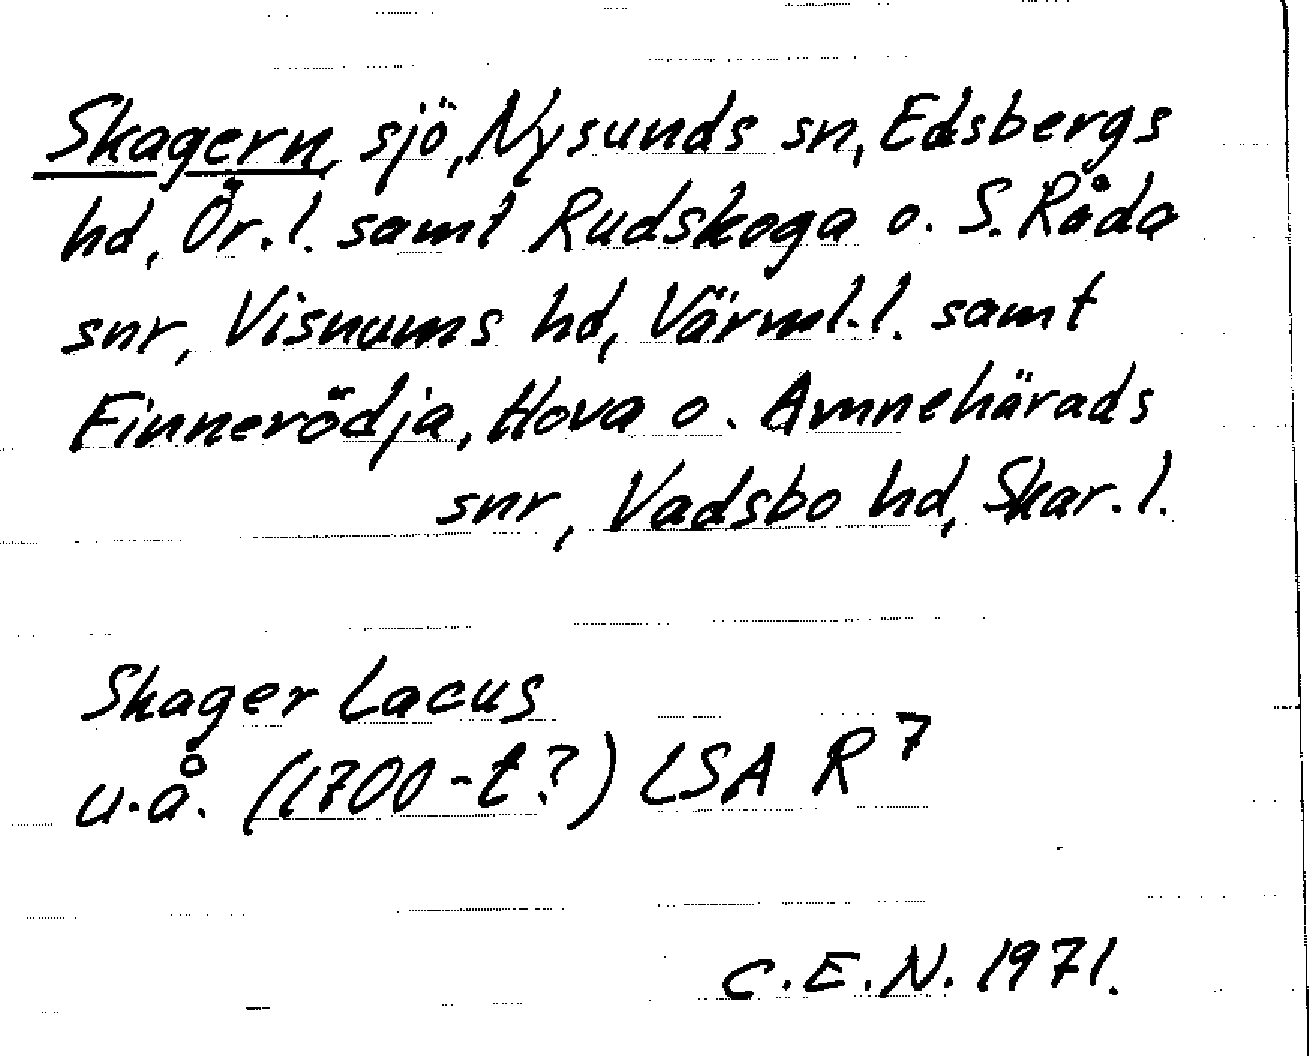 Skagern, sjö, Nysunds sn, Edsbergs
hd, Ör.l. samt Rudskoga o. S. Råda
snr, Visnums hd, Värml.l. samt
Finnerödja, Hova o. Amnehärads
snr, Vadsbo hd, Skar.l.
Skager Lacus
u.å. (1700-t?) LSA R7
C.E.N. 1971.